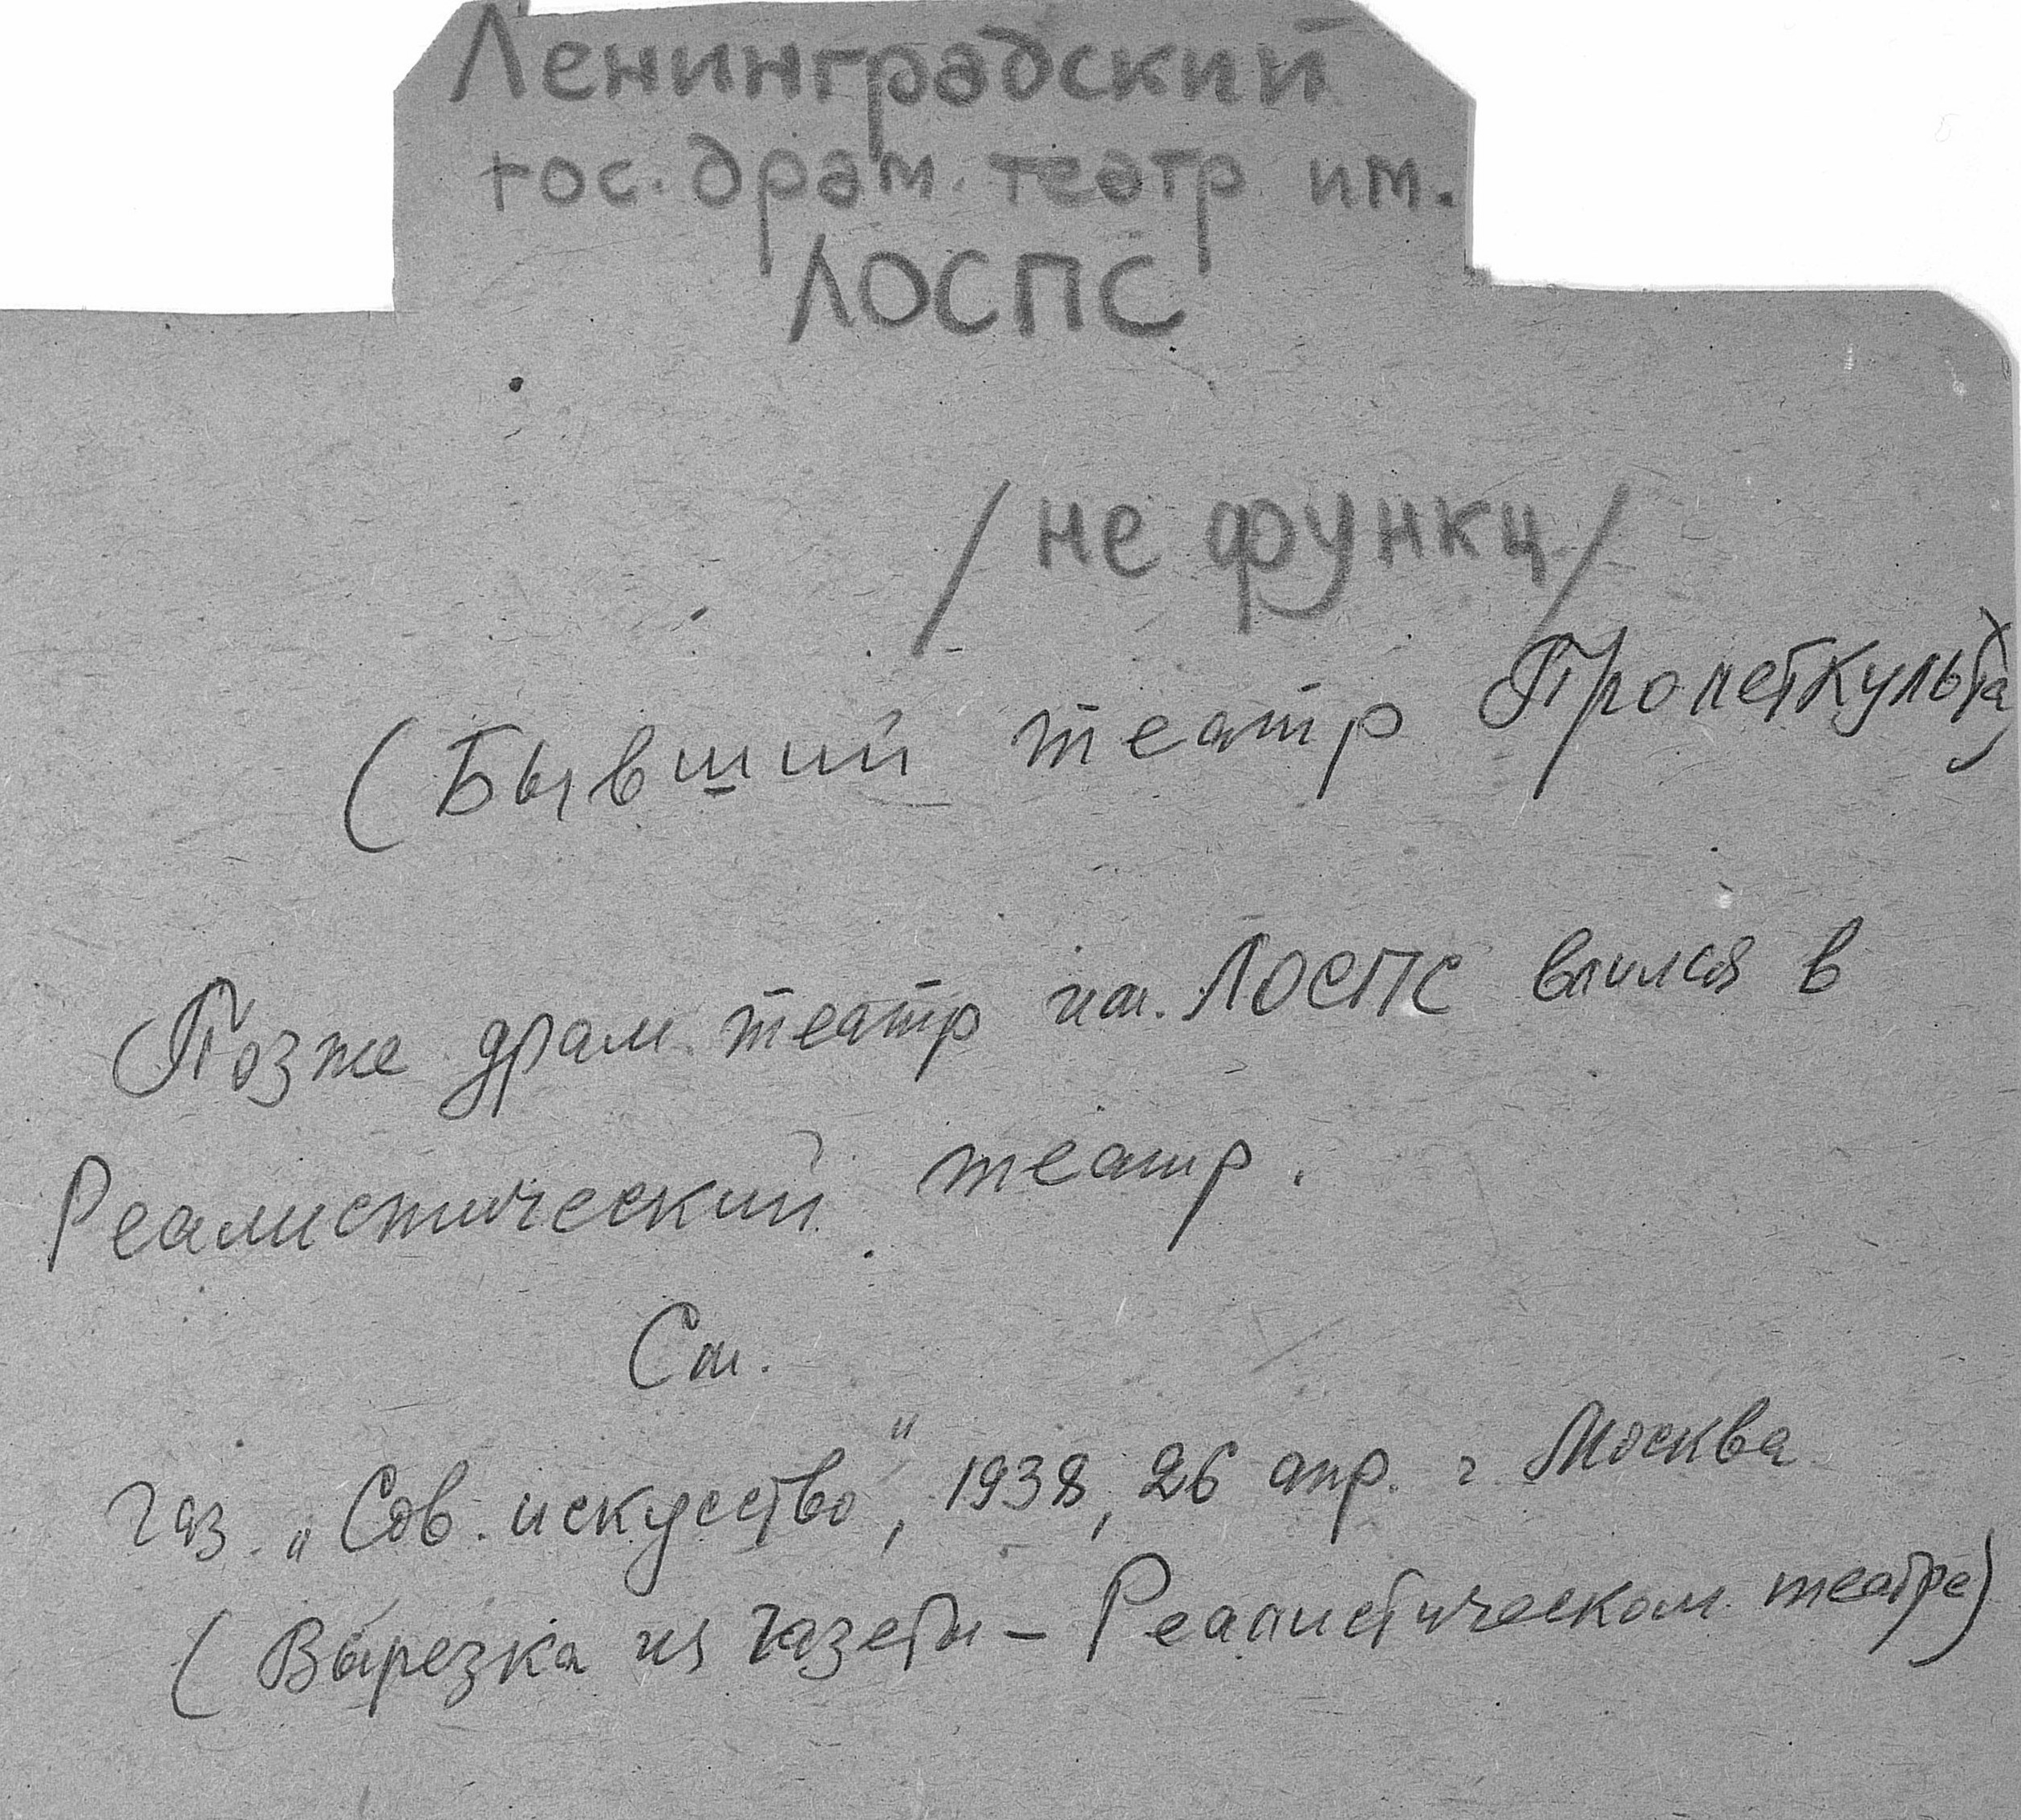 Ленинградский
гос. драм. театр им.
ЛОСПС
/не функц/
(Бывший театр Пролеткульта)
Позже драм. театр им. ЛОСПС влился в
Реалистический театр.
См.
газ. „Сов. искусство", 1938, 26 апр. г. Москва
(Вырезка из газеты – Реалистическом театре)